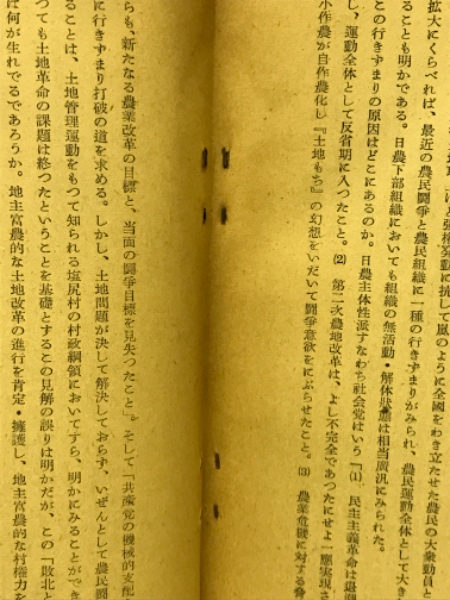 ほど強権発動に抗して嵐のように全國をわき立たせた農民の大衆動員と
拡大にくらべれば、最近の農民闘争と農民組織に一種の行きずまりがみられ、農民運動全体として大き
ることも明かである。日農下部組織においても組織の無活動・解体狀態は相当廣汎にみられた。
この行きずまりの原因はどこにあるのか。日農主体性派すなわち社会党はいう『(1) 民主主義革命は退潮
し、運動全体として反省期に入つたこと。(2) 第二次農地改革は、よし不完全であつたにせよ一應実現さ
小作農が自作農化し『土地もち』の幻想をいだいて闘争意欲をにぶらせたこと。(3) 農業危機に対する脅
らも、新たなる農業改革の目標と、当面の闘争目標を見失つたこと』。そして『共産党の機械的支配
に行きずまり打破の道を求める。しかし、土地問題が決して解決しておらず、いぜんとして農民闘
ることは、土地管理運動をもつて知られる塩尻村の村政綱領においてすら、明かにみることができ
つても土地革命の課題は終つたということを基礎とするこの見解の誤りは明かだが、この「敗北と
は何が生れでるであろうか。地主富農的な土地改革の進行を肯定・擁護し、地主富農的な村権力を